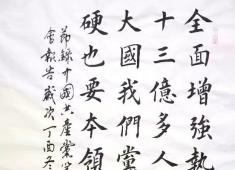 全面增強執
十三億多人
大國我們黨
硬也要本領
節錄中國共產黨
會報告歲次丁酉冬